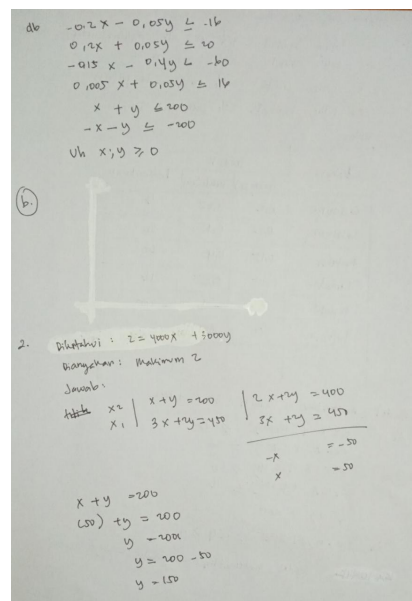 db -0,2x - 0,05y ≤ -16
0,2x + 0,05y ≤ 20
-0,15x - 0,4y ≤ -60
0,005x + 0,05y ≤ 16
x + y ≤ 200
-x - y ≤ -200
Uh x;y ≥ 0
b.
2. Diketahui : Z = 4000x + 3000y
Ditanyakan : Maksimum Z
Jawab :
x2 | x + y = 200 | 2x + 2y = 400
x1 | 3x + 2y = 450 | 3x + 2y = 450
-x = -50
x = 50
x + y = 200
(50) + y = 200
y = 200
y = 200 - 50
y = 150